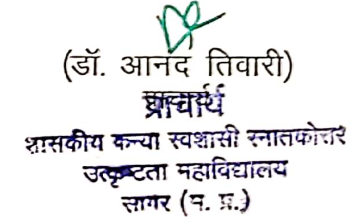 (डॉ. आनंद तिवारी)
प्राचार्य
शासकीय कन्या स्वशासी स्नातकोत्तर
उत्कृष्टता महाविद्यालय
सागर (म. प्र.)